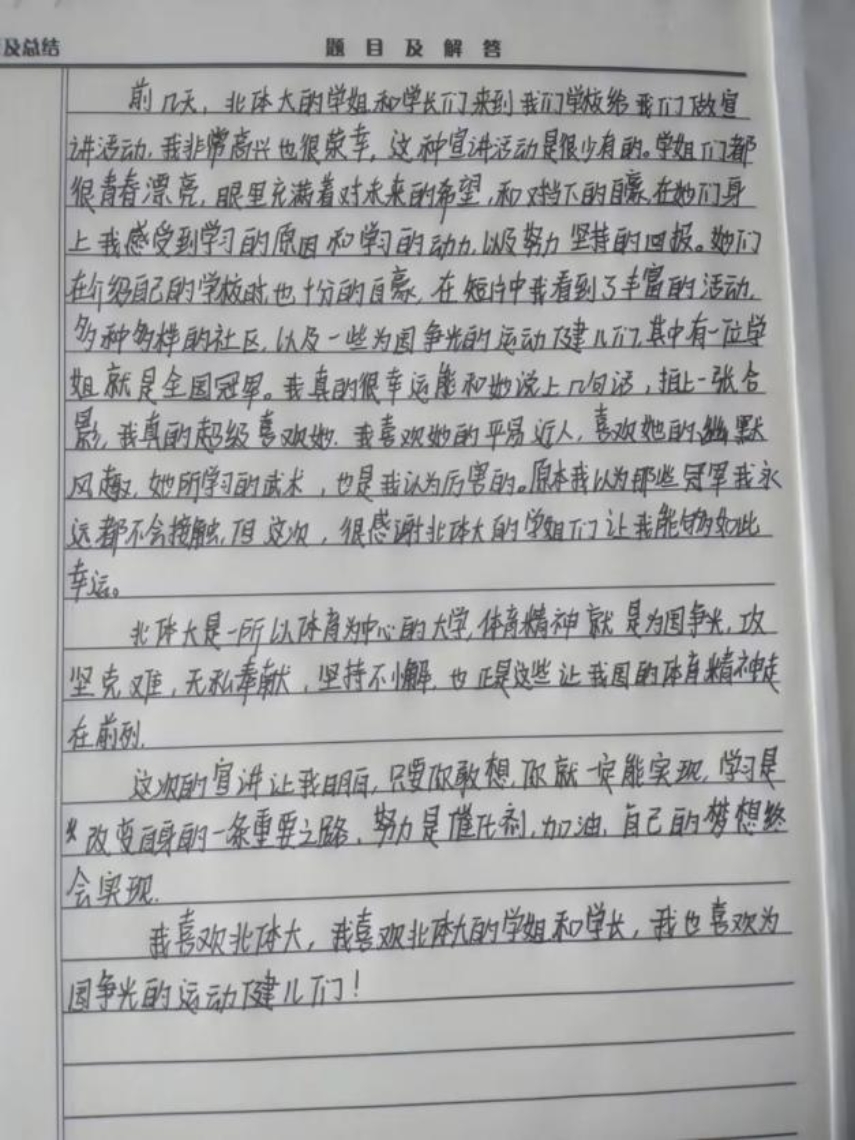 及总结
题目及解答
前几天，北体大的学姐和学长们来到我们学校给我们做宣
讲活动，我非常高兴也很荣幸，这种宣讲活动是很少有的。学姐们都
很青春漂亮，眼里充满着对未来的希望，和对当下的自豪，在她们身
上我感受到学习的原因和学习的动力，以及努力坚持的回报。她们
在介绍自己的学校时，也十分的自豪，在短片中我看到了丰富的活动，
多种多样的社区，以及一些为国争光的运动健儿们，其中有一位学
姐就是全国冠军。我真的很幸运能和她说上几句话，拍上一张合
影，我真的超级喜欢她，我喜欢她的平易近人，喜欢她的幽默
风趣，她所学习的武术，也是我认为厉害的。原本我以为那些冠军我永
远都不会接触，但这次，很感谢北体大的学姐们让我能够如此
幸运。
北体大是一所以体育为中心的大学，体育精神就是为国争光，攻
坚克难，无私奉献，坚持不懈，也正是这些让我国的体育精神走
在前列，
这次的宣讲让我明白，只要你敢想，你就一定能实现，学习是
改变自身的一条重要之路，努力是催化剂，加油，自己的梦想终
会实现，
我喜欢北体大，我喜欢北体大的学姐和学长，我也喜欢为
国争光的运动健儿们！